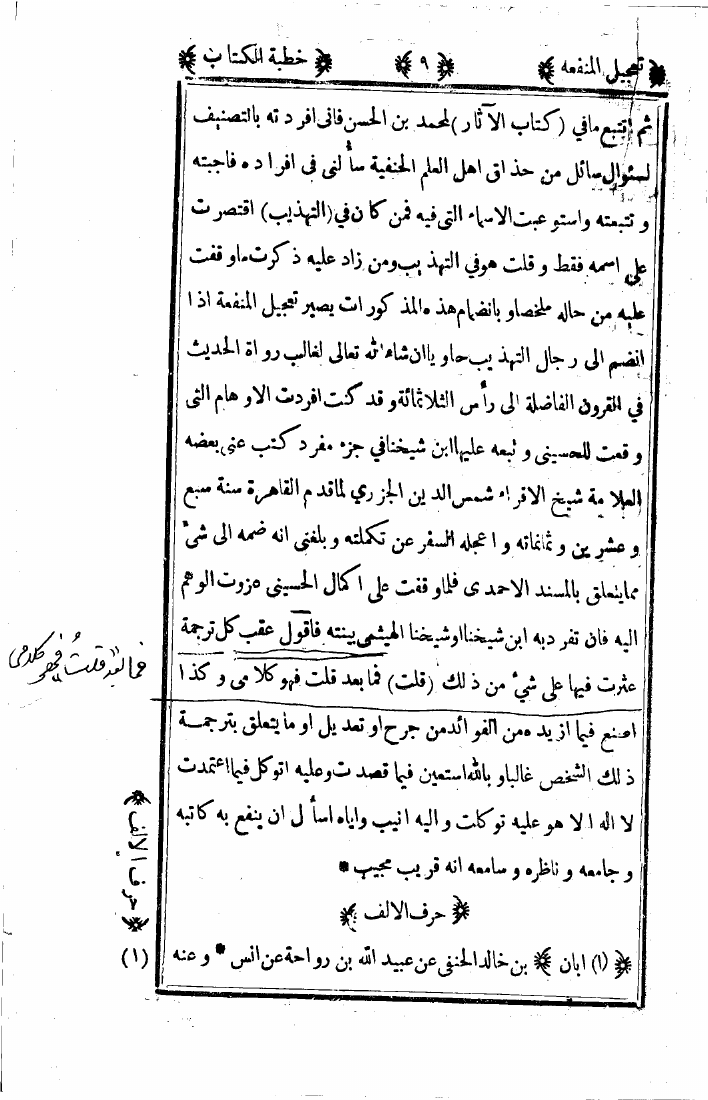 تعجيل المنفعه ﴿ ٩ ﴾ خطبة الكتاب
ثم اتتبع مافي (كتاب الآثار) لمحمد بن الحسن فانى افردته بالتصنيف
لسئوال سائل من حذاق اهل العلم الحنفية سألنى فى افراده فاجبته
و تتبعته واستوعبت الاسماء التى فيه فمن كان في (التهذيب) اقتصرت
على اسمه فقط و قلت هو في التهذيب ومن زاد عليه ذكرت ماوقفت
عليه من حاله ملخصا و بانضمام هذه المذكورات يصير تعجيل المنفعة اذا
انضم الى رجال التهذيب حاويا ان شاء الله تعالى لغالب رواة الحديث
في القرون الفاضلة الى رأس الثلاثمائة و قد كنت افردت الاوهام التى
وقعت للحسينى و تبعه عليها ابن شيخنا في جزء مفرد كتب عنى بعضه
العلامة شيخ الاقراء شمس الدين الجزري لما قدم القاهرة سنة سبع
و عشرين و ثمانمائه و اعجله السفر عن تكملته و بلغنى انه ضمه الى شئ
مما يتعلق بالمسند الاحمدى فلما وقفت على اكمال الحسينى عزوت الوهم
اليه فان تفرد به ابن شيخنا او شيخنا الهيثمى بينته فاقول عقب كل ترجمة
عثرت فيها على شئ من ذلك (قلت) فما بعد قلت فهو كلامى و كذا
اصنع فيما ازيده من الفوائد من جرح او تعديل او ما يتعلق بترجمة
ذلك الشخص غالبا و بالله استعين فيما قصدت وعليه اتوكل فيما اعتمدت
لا اله الا هو عليه توكلت و اليه انيب واياه اسأل ان ينفع به كاتبه
و جامعه و ناظره و سامعه انه قريب مجيب *
﴿ حرف الالف ﴾
﴿ (١) ابان ﴾ بن خالد الحنفى عن عبيد الله بن رواحة عن انس * و عنه
فما بعد قلتُ فهو كلامى
﴿ حرف الالف ﴾
(١)